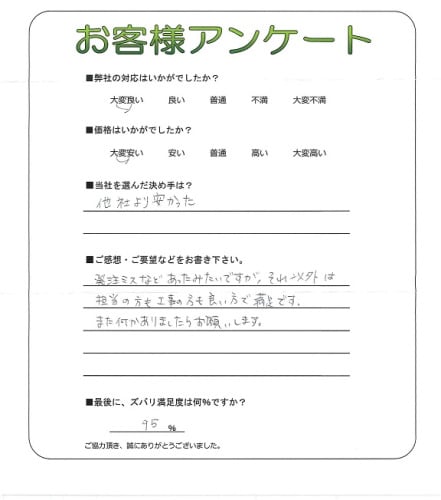 お客様アンケート
■弊社の対応はいかがでしたか？
大変良い 良い 普通 不満 大変不満
■価格はいかがでしたか？
大変安い 安い 普通 高い 大変高い
■当社を選んだ決め手は？
他社より安かった
■ご感想・ご要望などをお書き下さい。
発注ミスなどあったみたいですが、それ以外は
担当の方も工事の方も良い方で満足です。
また何かありましたらお願いします。
■最後に、ズバリ満足度は何%ですか？
95 %
ご協力頂き、誠にありがとうございました。